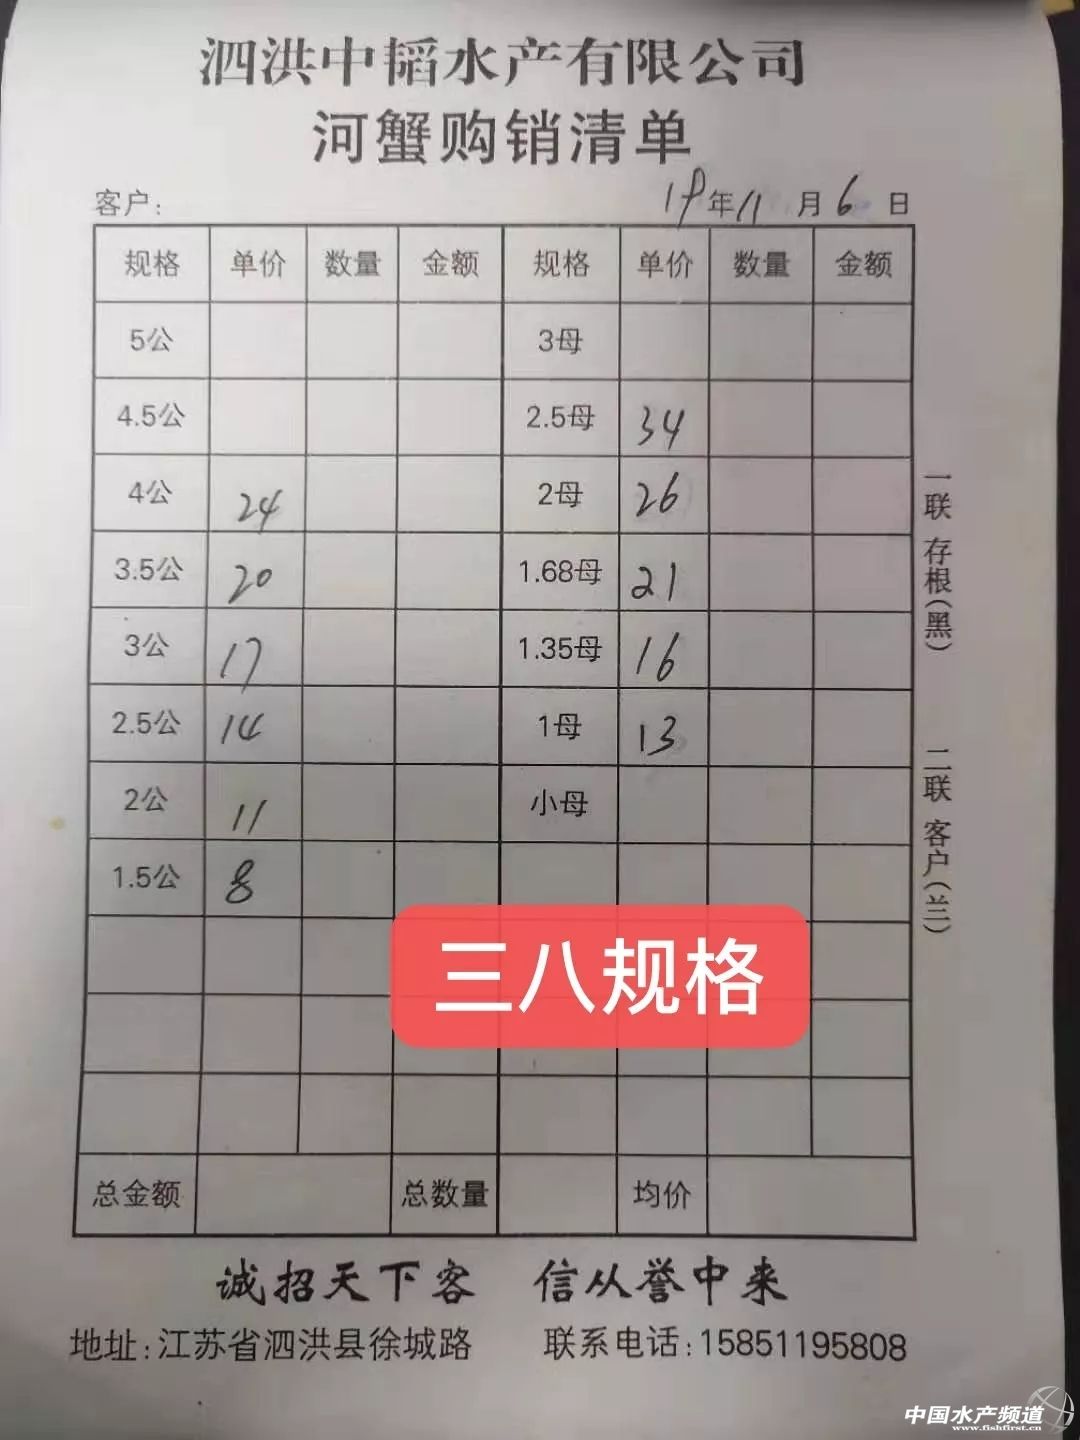 泗洪中韬水产有限公司
河蟹购销清单
客户: 19年11月6日
规格 单价 数量 金额 规格 单价 数量 金额
5公 3母
4.5公 2.5母 34
4公 24 2母 26
3.5公 20 1.68母 21
3公 17 1.35母 16
2.5公 14 1母 13
2公 11 小母
1.5公 8
一联 存根(黑) 二联 客户(兰)
三八规格
总金额 总数量 均价
诚招天下客 信从誉中来
地址:江苏省泗洪县徐城路 联系电话:15851195808
中国水产频道
www.fishfirst.cn